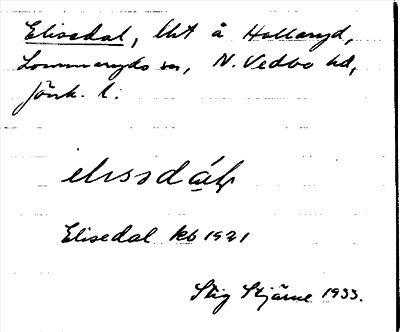 Elisedal, lht å Hollaryd,
Lommaryds sn, N. Vedbo hd,
Jönk. l.
Elisedal kb 1921
Stig Stjärne 1933.